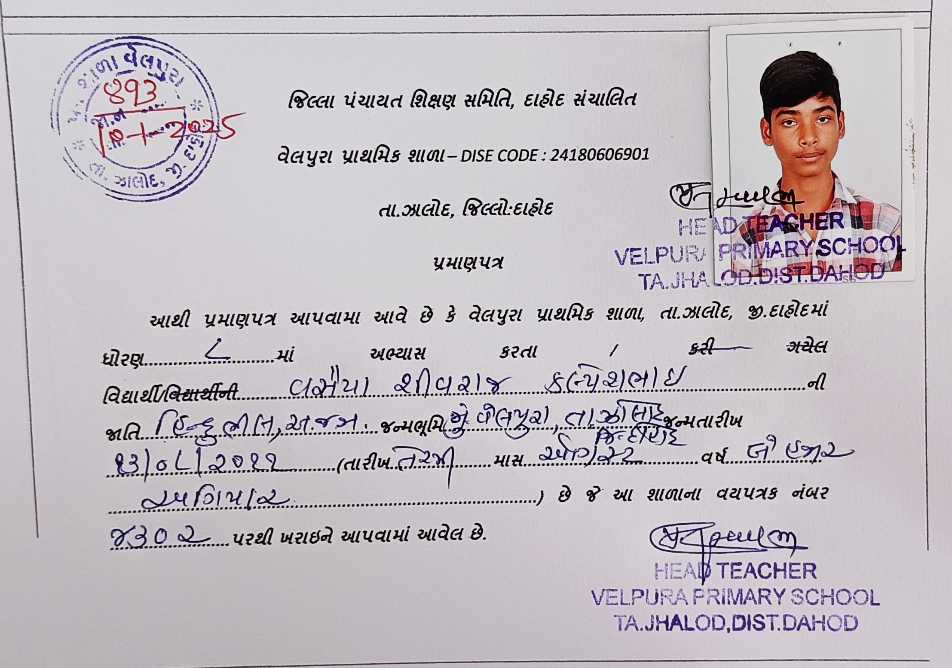 પ્રા. શાળા વેલપુરા
893
જા.નં.
તા. 18-1-2025
તા. ઝાલોદ, જી. દાહોદ
જિલ્લા પંચાયત શિક્ષણ સમિતિ, દાહોદ સંચાલિત
વેલપુરા પ્રાથમિક શાળા – DISE CODE : 24180606901
તા.ઝાલોદ, જિલ્લો:દાહોદ
HEAD TEACHER
VELPURA PRIMARY SCHOOL
TA.JHALOD.DIST.DAHOD
પ્રમાણપત્ર
આથી પ્રમાણપત્ર આપવામા આવે છે કે વેલપુરા પ્રાથમિક શાળા, તા.ઝાલોદ, જી.દાહોદમાં
ધોરણ ૮ માં અભ્યાસ કરતા / કરી ગયેલ
વિદ્યાર્થી/વિદ્યાર્થીની વસૈયા શીવરાજ કલ્પેશભાઇ ની
જાતિ હિન્દુ ભીલ, અ.જ.જા. જન્મભૂમિ મું વેલપુરા, તા.ઝાલોદ જિ-દાહોદ જન્મતારીખ
૧૩/૦૮/૨૦૧૧ (તારીખ તેરમી માસ ઓગસ્ટ વર્ષ બે હજાર
અગિયાર ) છે જે આ શાળાના વયપત્રક નંબર
૪૩૦૨ પરથી ખરાઇને આપવામાં આવેલ છે.
HEAD TEACHER
VELPURA PRIMARY SCHOOL
TA.JHALOD,DIST.DAHOD